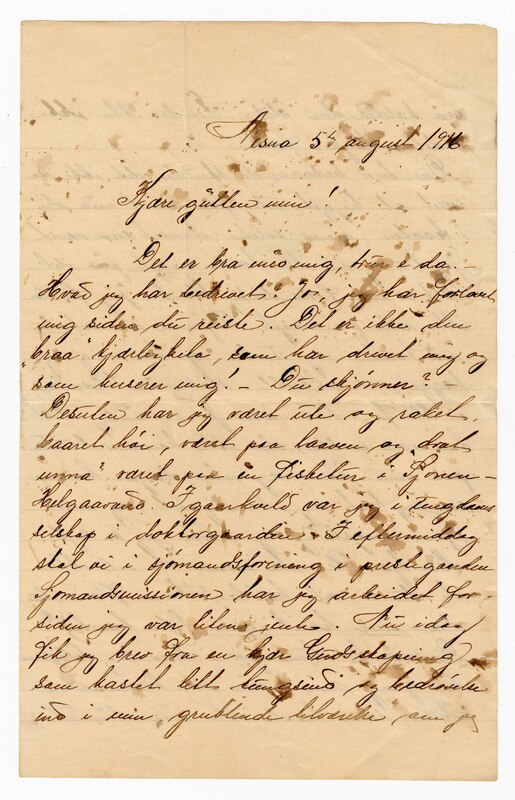 Nesna 5te august 1916
Kjære gutten min!
Det er bra med mig, trur e da. –
Hvad jeg har bedrevet. Jo, jeg har forlovet
mig siden du reiste. Det er ikke den
"braa" kjærligheta, som har drevet mig og
som huserer mig! – Du skjønner?
Desuten har jeg været ute og raket,
baaret höi, været paa laaven og "drat
unna" været paa en fisketur i Sjonen –
Helgaavand. Igaarkveld var jeg i ungdoms
selskap i doktorgaarden. I eftermiddag
skal vi i sjømandsforening i prestegaarden
Sjømandsmissionen har jeg arbeidet for
siden jeg var liten jente. Nu idag
fik jeg brev fra en kjær Gudsskapning
som kastet litt tungsind og bedrøvelse
ind i min "grublende tilværelse" om jeg